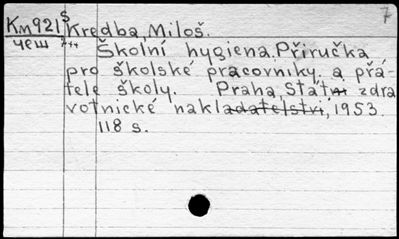 7
Км921 S Kredba, Miloš.
чеш 714 Školní hygiena. Příručka
pro školské pracovníky a přá-
tele školy. Praha, Státní zdra
votnické nakladatelství, 1953.
118 s.